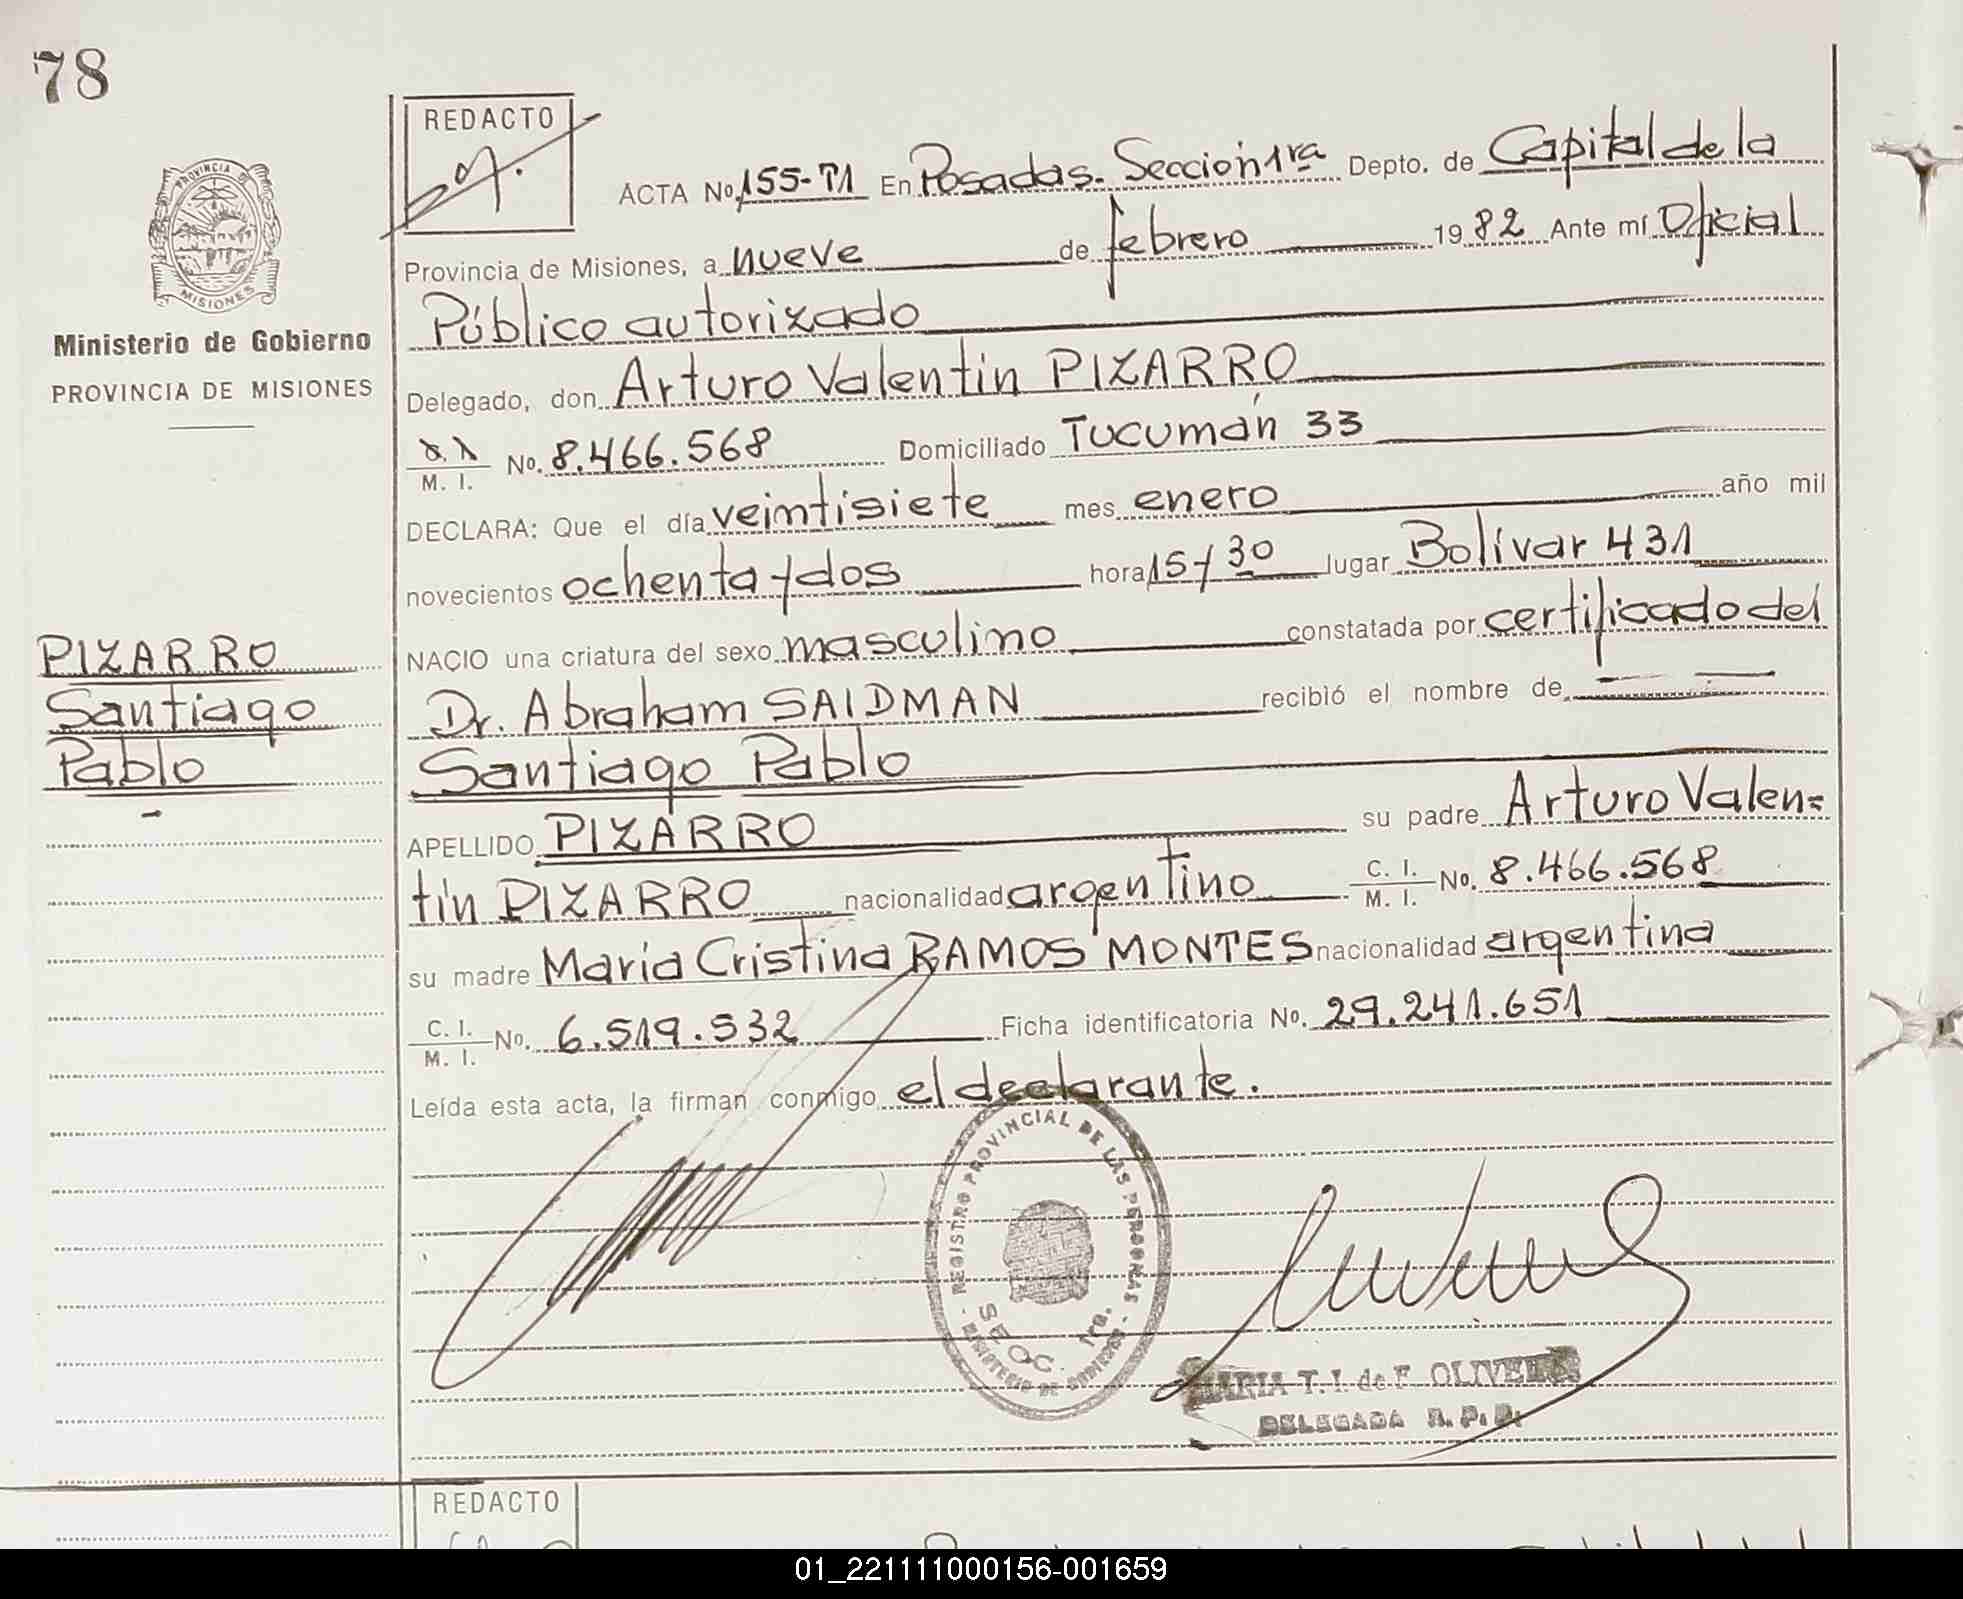 78
REDACTO
ACTA No. 155-T1 En Posadas. Sección 1ra Depto. de Capital de la
Provincia de Misiones, a nueve de febrero 1982 Ante mí Oficial
Público autorizado
Delegado, don Arturo Valentin PIZARRO
M. I. No. 8.466.568 Domiciliado Tucumán 33
DECLARA: Que el día veintisiete mes enero año mil
novecientos ochenta y dos hora 15/30 lugar Bolívar 431
NACIO una criatura del sexo masculino constatada por certificado del
Dr. Abraham SAIDMAN recibió el nombre de
Santiago Pablo
APELLIDO PIZARRO su padre Arturo Valen=
tín PIZARRO nacionalidad argentino C. I. M. I. No. 8.466.568
su madre María Cristina RAMOS MONTES nacionalidad argentina
C. I. M. I. No. 6.519.532 Ficha identificatoria No. 29.241.651
Leída esta acta, la firman conmigo el declarante.
PROVINCIA DE MISIONES
Ministerio de Gobierno
PROVINCIA DE MISIONES
PIZARRO
Santiago
Pablo
REGISTRO PROVINCIAL DE LAS PERSONAS
SECC. 1ra.
MINISTERIO DE GOBIERNO
MARIA T. I. de F. OLIVEROS
DELEGADA R. P. P.
REDACTO
01_221111000156-001659